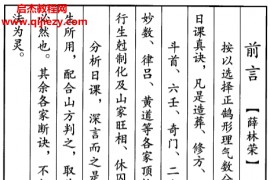 启杰教程网
www.qijiejc.com
前言【薛林荣】
按以选择正鹤形理气数会
日课真诀，凡是造葬、修方、
斗首、六壬、奇门、二
妙数、律吕、黄道等各家顶
行生尅制化及山家旺相、休囚
分析日课，深言而之是
生所用，配合山方判之，取
必然也。其余各家断诀，不
法为灵。